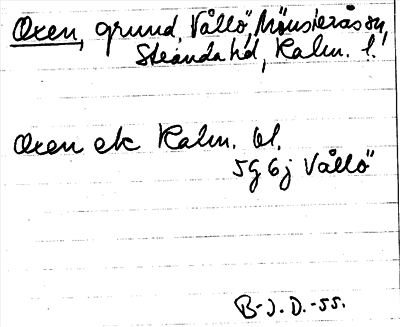 Oxen, grund, Vållö, Mönsterås sn,
Stranda hd, Kalm. l.
Oxen ek Kalm. bl.
5g6j Vållö
B-J.D.-55.